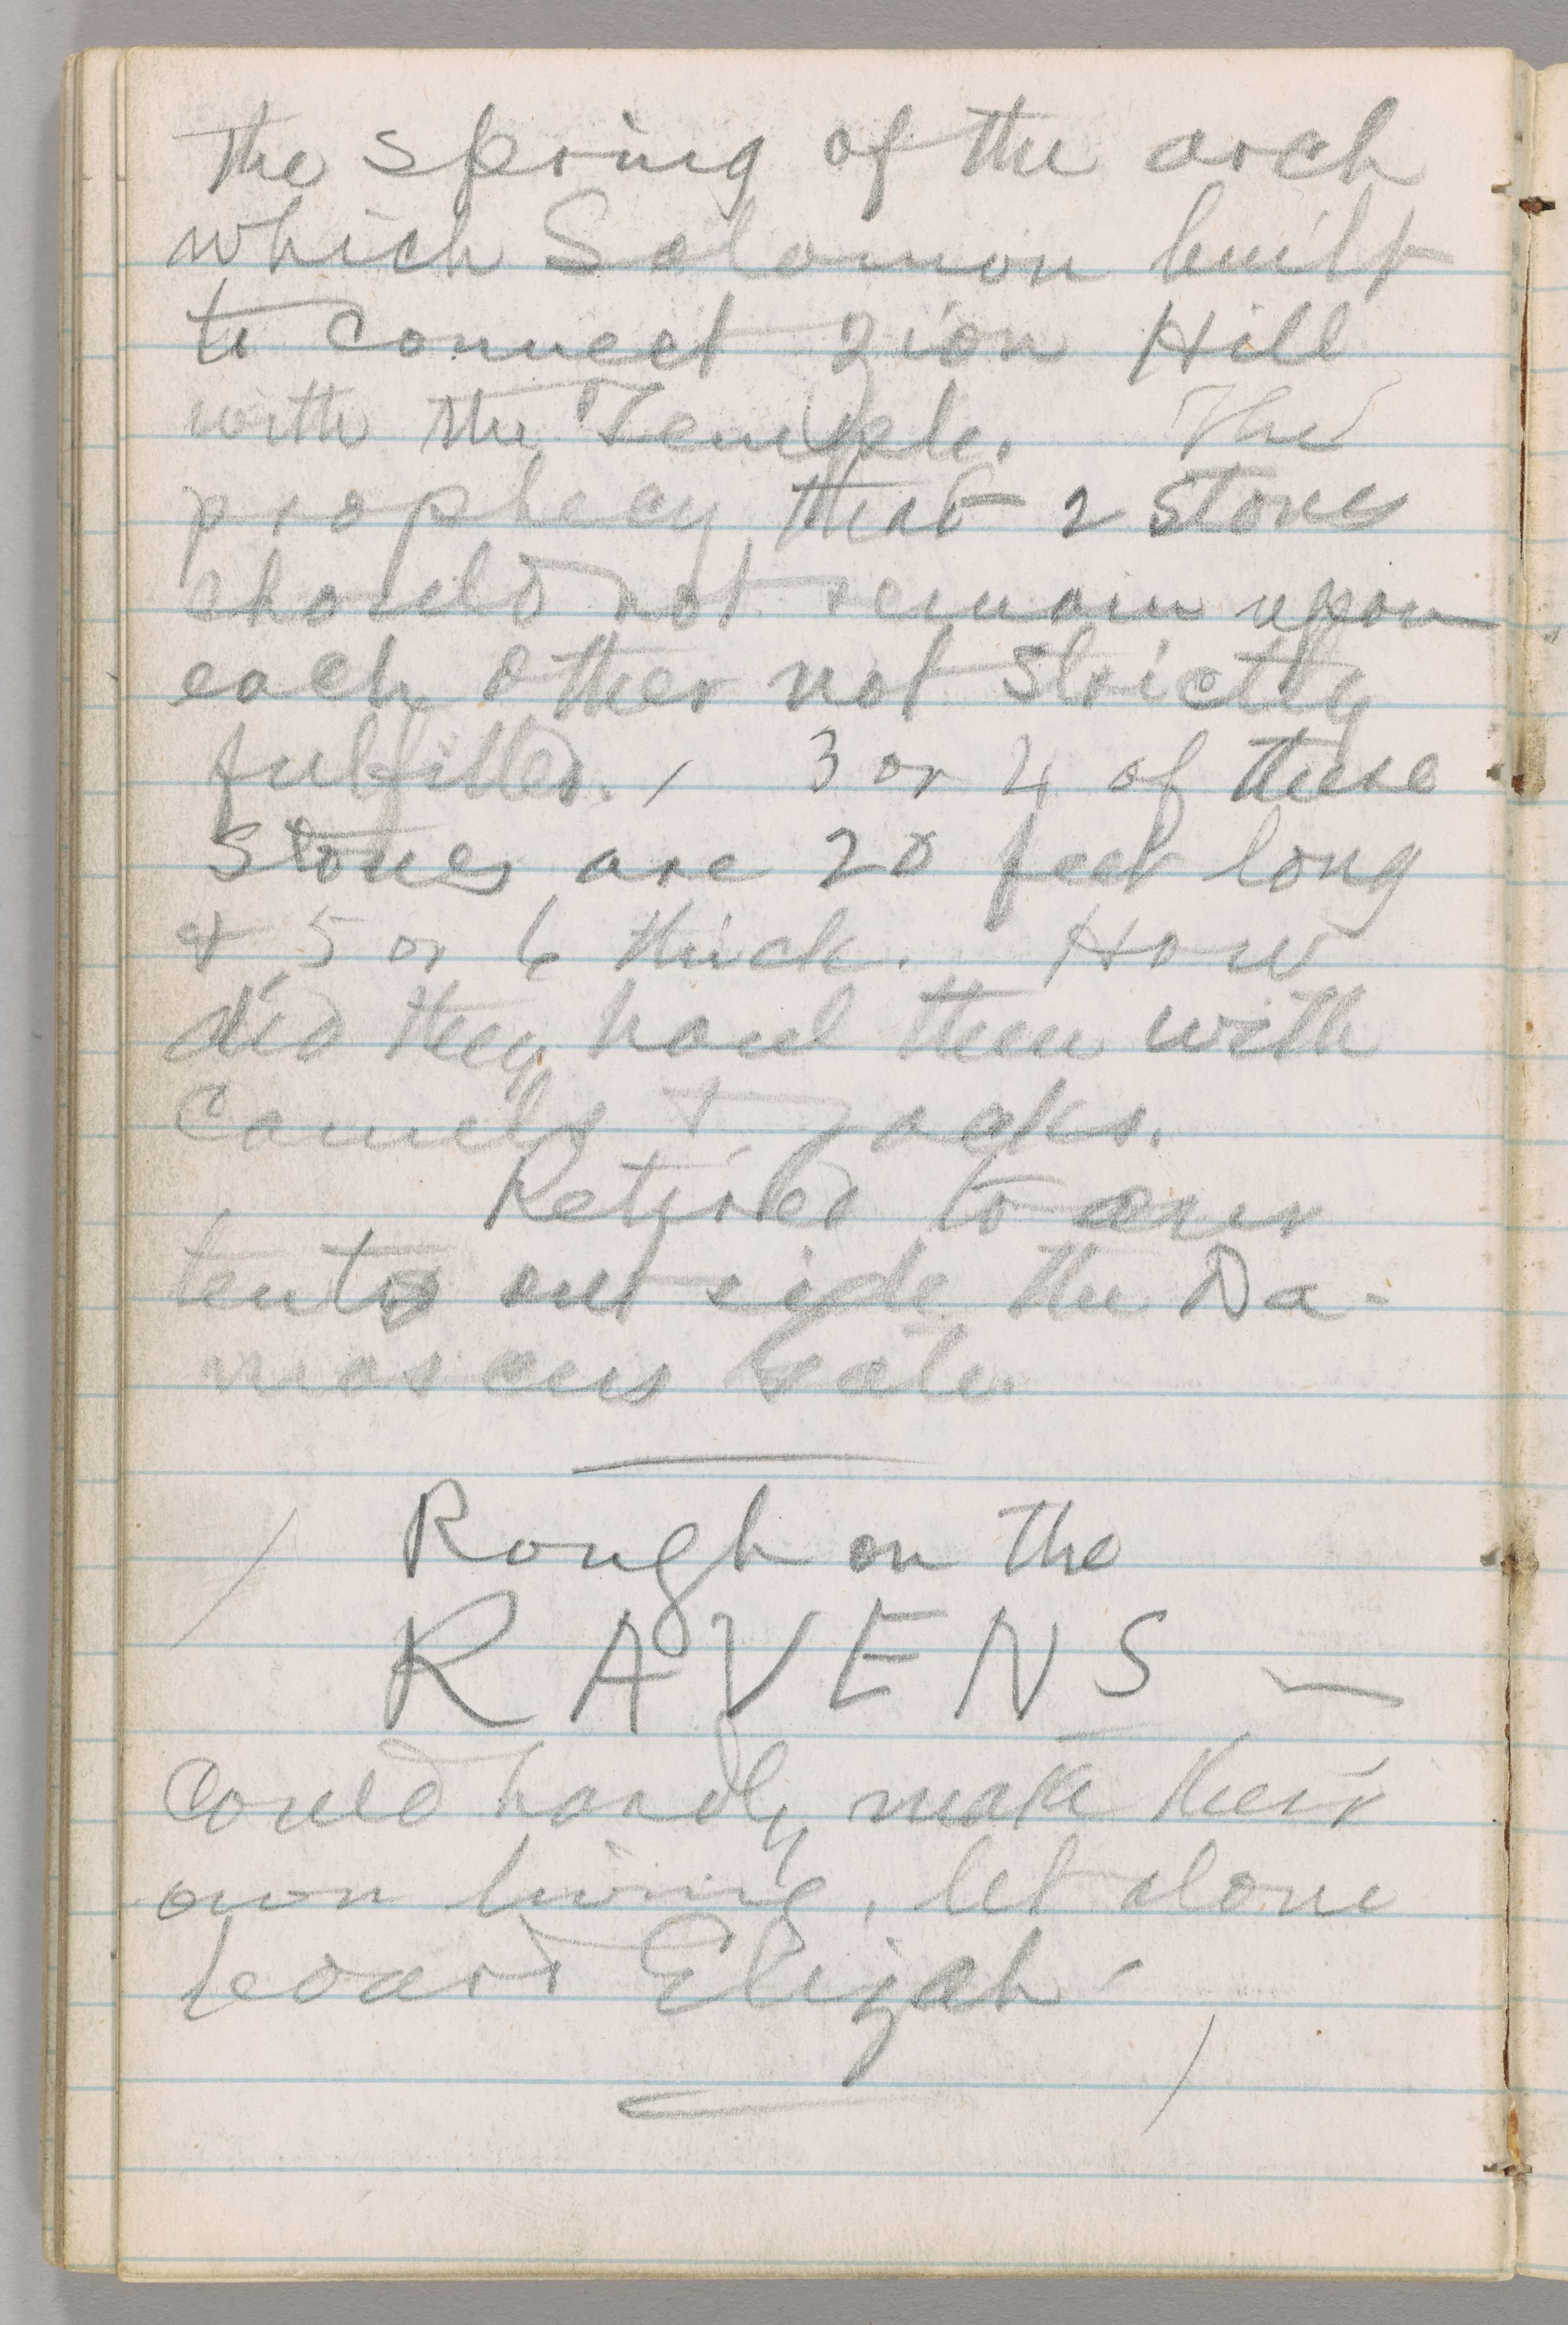 the spring of the arch
which Solomon built
to connect Zion Hill
with the Temple. The
prophecy that 2 stones
should not remain upon
each other not strictly
fulfilled. / 3 or 4 of these
stones are 20 feet long
& 5 or 6 thick. How
did they haul them with
camels & jacks.
Retired to our
tents outside the Da-
mascus Gate.
Rough on the
RAVENS —
Could hardly make their
own living, let alone
board Elijah